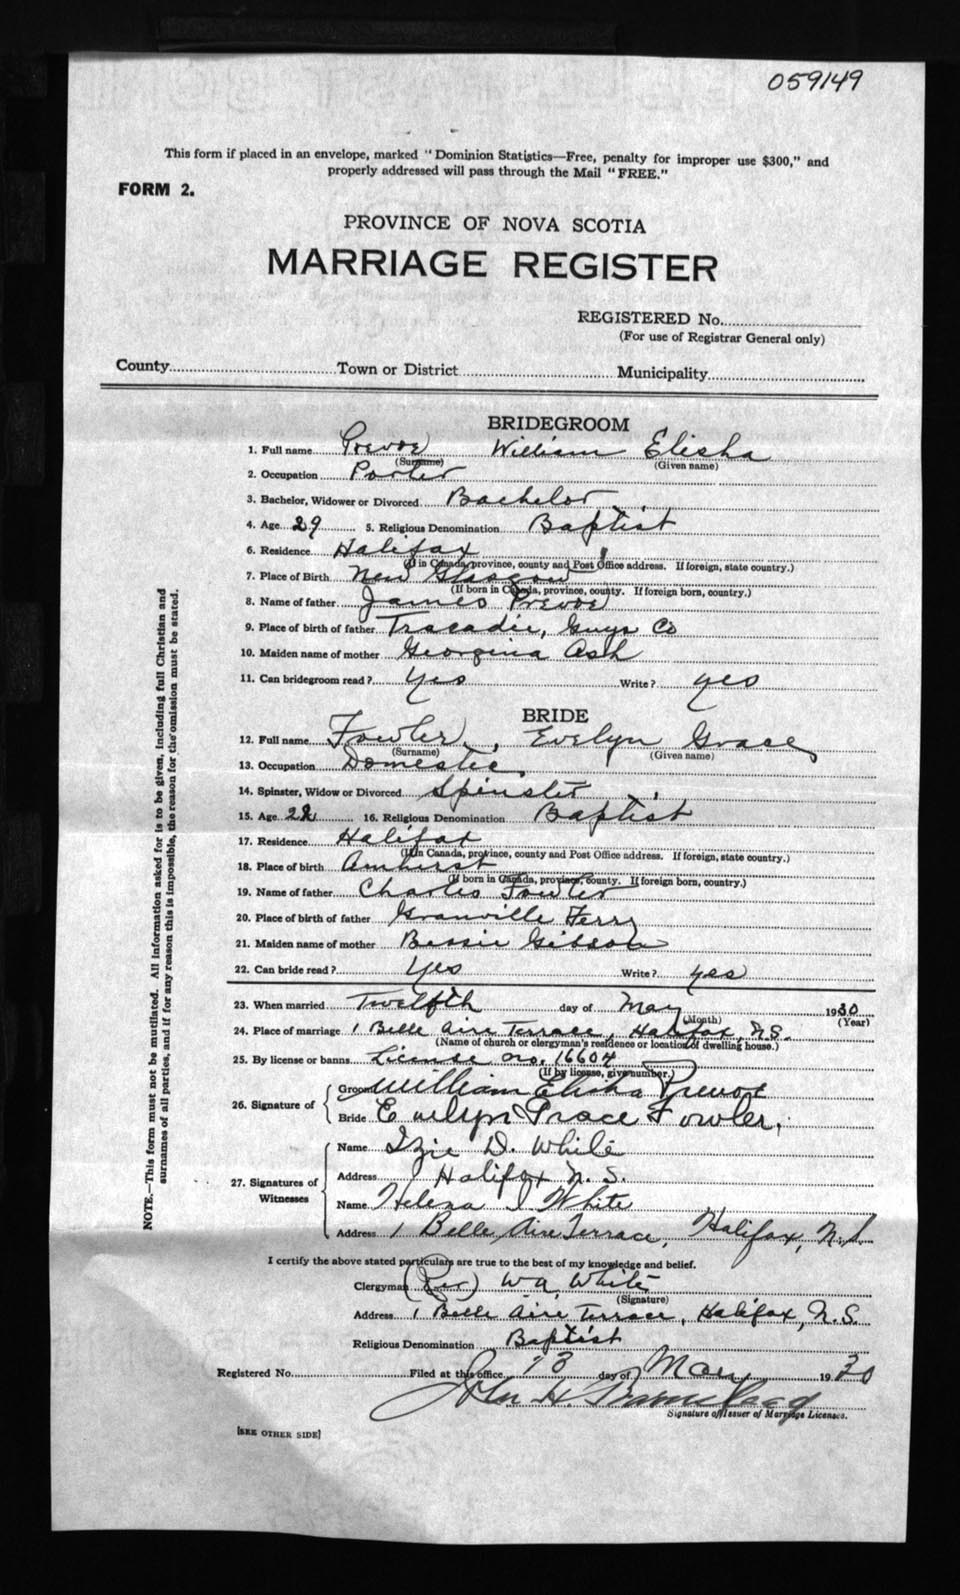 059149
This form if placed in an envelope, marked "Dominion Statistics—Free, penalty for improper use $300," and
properly addressed will pass through the Mail "FREE."
FORM 2.
PROVINCE OF NOVA SCOTIA
MARRIAGE REGISTER
REGISTERED No.
(For use of Registrar General only)
County Town or District Municipality
BRIDEGROOM
1. Full name Prevoe William Elisha
(Surname) (Given name)
2. Occupation Porter
3. Bachelor, Widower or Divorced Bachelor
4. Age 29 5. Religious Denomination Baptist
6. Residence Halifax
(If in Canada, province, county and Post Office address. If foreign, state country.)
7. Place of Birth New Glasgow
(If born in Canada, province, county. If foreign born, country.)
8. Name of father James Prevoe
9. Place of birth of father Tracadie, Guys Co
10. Maiden name of mother Georgina Ash
11. Can bridegroom read? Yes Write? yes
BRIDE
12. Full name Fowler, Evelyn Grace
(Surname) (Given name)
13. Occupation Domestic
14. Spinster, Widow or Divorced Spinster
15. Age 16. Religious Denomination Baptist
17. Residence Halifax
(If in Canada, province, county and Post Office address. If foreign, state country.)
18. Place of birth Amherst
(If born in Canada, province, county. If foreign born, country.)
19. Name of father Charles Fowler
20. Place of birth of father Granville Ferry
21. Maiden name of mother Bessie Gibson
22. Can bride read? Yes Write? yes
23. When married Twelfth day of May 1930
(Month) (Year)
24. Place of marriage 1 Belle Aire Terrace, Halifax, N.S.
(Name of church or clergyman's residence or location of dwelling house.)
25. By license or banns License no. 16604
(If by license, give number.)
26. Signature of
Groom William Elisha Prevoe
Bride Evelyn Grace Fowler,
27. Signatures of Witnesses
Name Izie D. White
Address Halifax N.S.
Name Helena I White
Address 1 Belle Aire Terrace, Halifax, N.S.
I certify the above stated particulars are true to the best of my knowledge and belief.
Clergyman (Rev) W A White
(Signature)
Address 1 Belle Aire Terrace, Halifax, N.S.
Religious Denomination Baptist
Registered No. Filed at this office 13 day of May 1930
John H.
Signature of Issuer of Marriage Licenses.
[SEE OTHER SIDE]
NOTE.—This form must not be mutilated. All information asked for is to be given, including full Christian and
surnames of all parties, and if for any reason this is impossible, the reason for the omission must be stated.